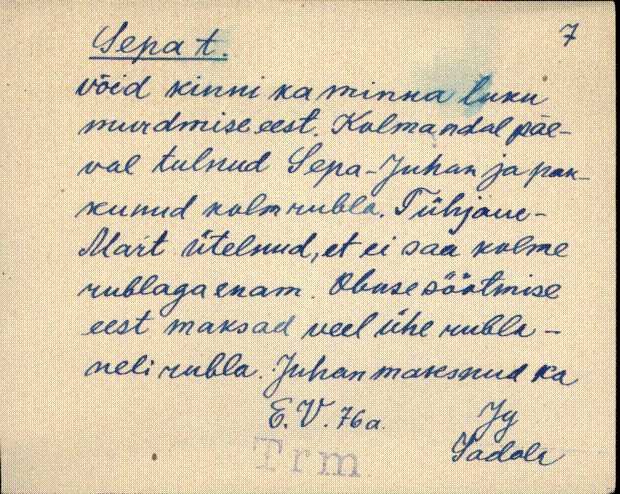 Sepa t.
7
võid kinni ka minna luku
murdmise eest. Kolmandal päe-
val tulnud Sepa-Juhan ja pak-
kunud kolm rubla. Tühjaue-
Mart ütelnud, et ei saa kolme
rublaga enam. Obuse söötmise
eest maksad veel ühe rubla -
neli rubla. Juhan maksnud ka
E. V. 76 a. Jg
Trm